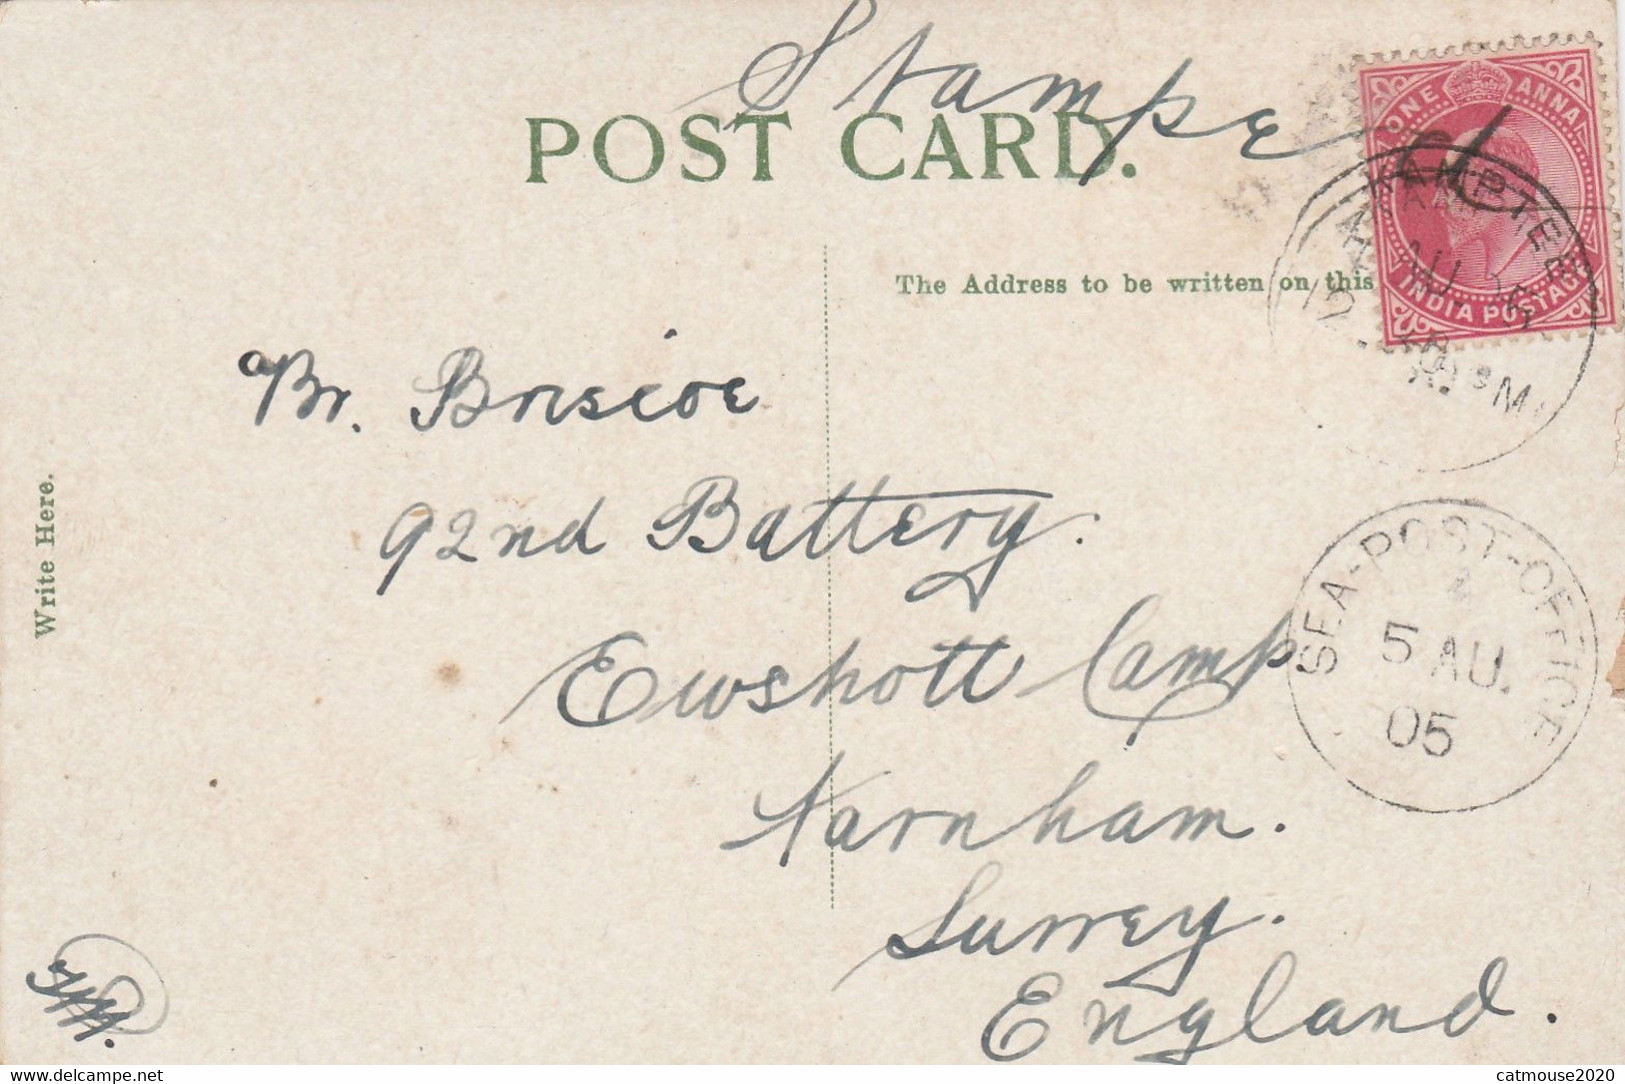 Stamped
POST CARD.
ONE ANNA
INDIA POSTAGE
KAMPTEE
The Address to be written on this
Br. Briscoe
92nd Battery.
Ewshott Camp
Farnham.
Surrey.
England.
Write Here.
SEA-POST-OFFICE
5 AU.
05
www.delcampe.net
catmouse2020